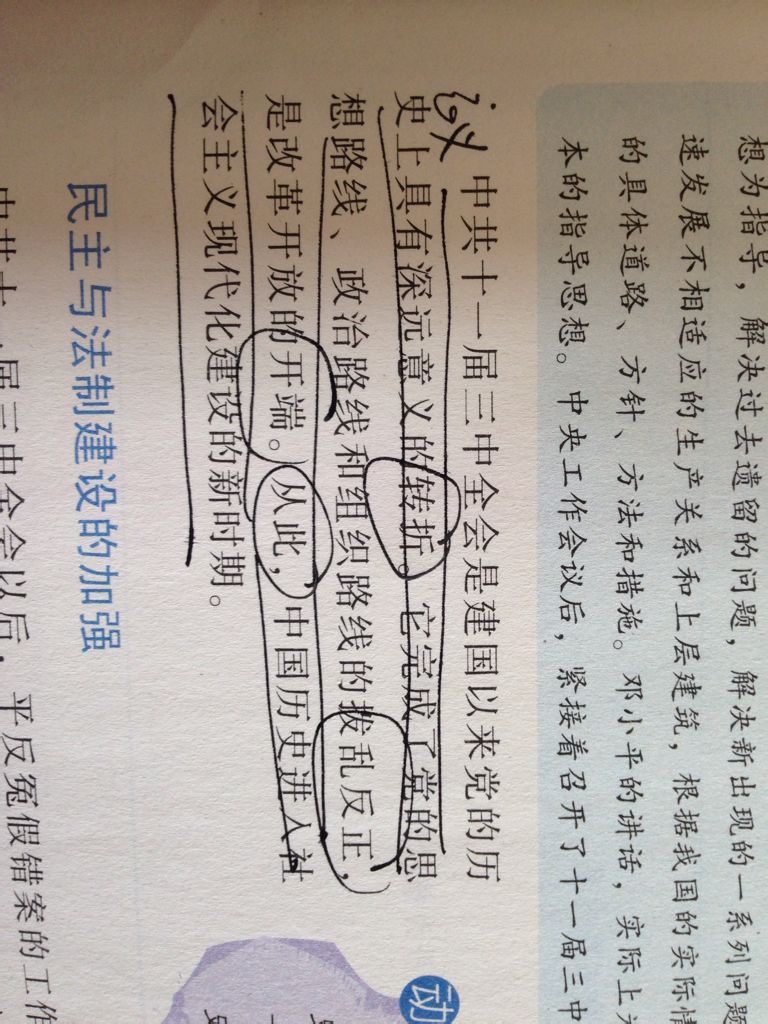 想为指导，解决过去遗留的问题，解决新出现的一系列问题
速发展不相适应的生产关系和上层建筑，根据我国的实际情
的具体道路、方针、方法和措施。邓小平的讲话，实际上
本的指导思想。中央工作会议后，紧接着召开了十一届三中
议
中共十一届三中全会是建国以来党的历
史上具有深远意义的转折。它完成了党的思
想路线、政治路线和组织路线的拨乱反正，
是改革开放的开端。从此，中国历史进入社
会主义现代化建设的新时期。
动
民主与法制建设的加强
中共十一届三中全会以后，平反冤假错案的工作